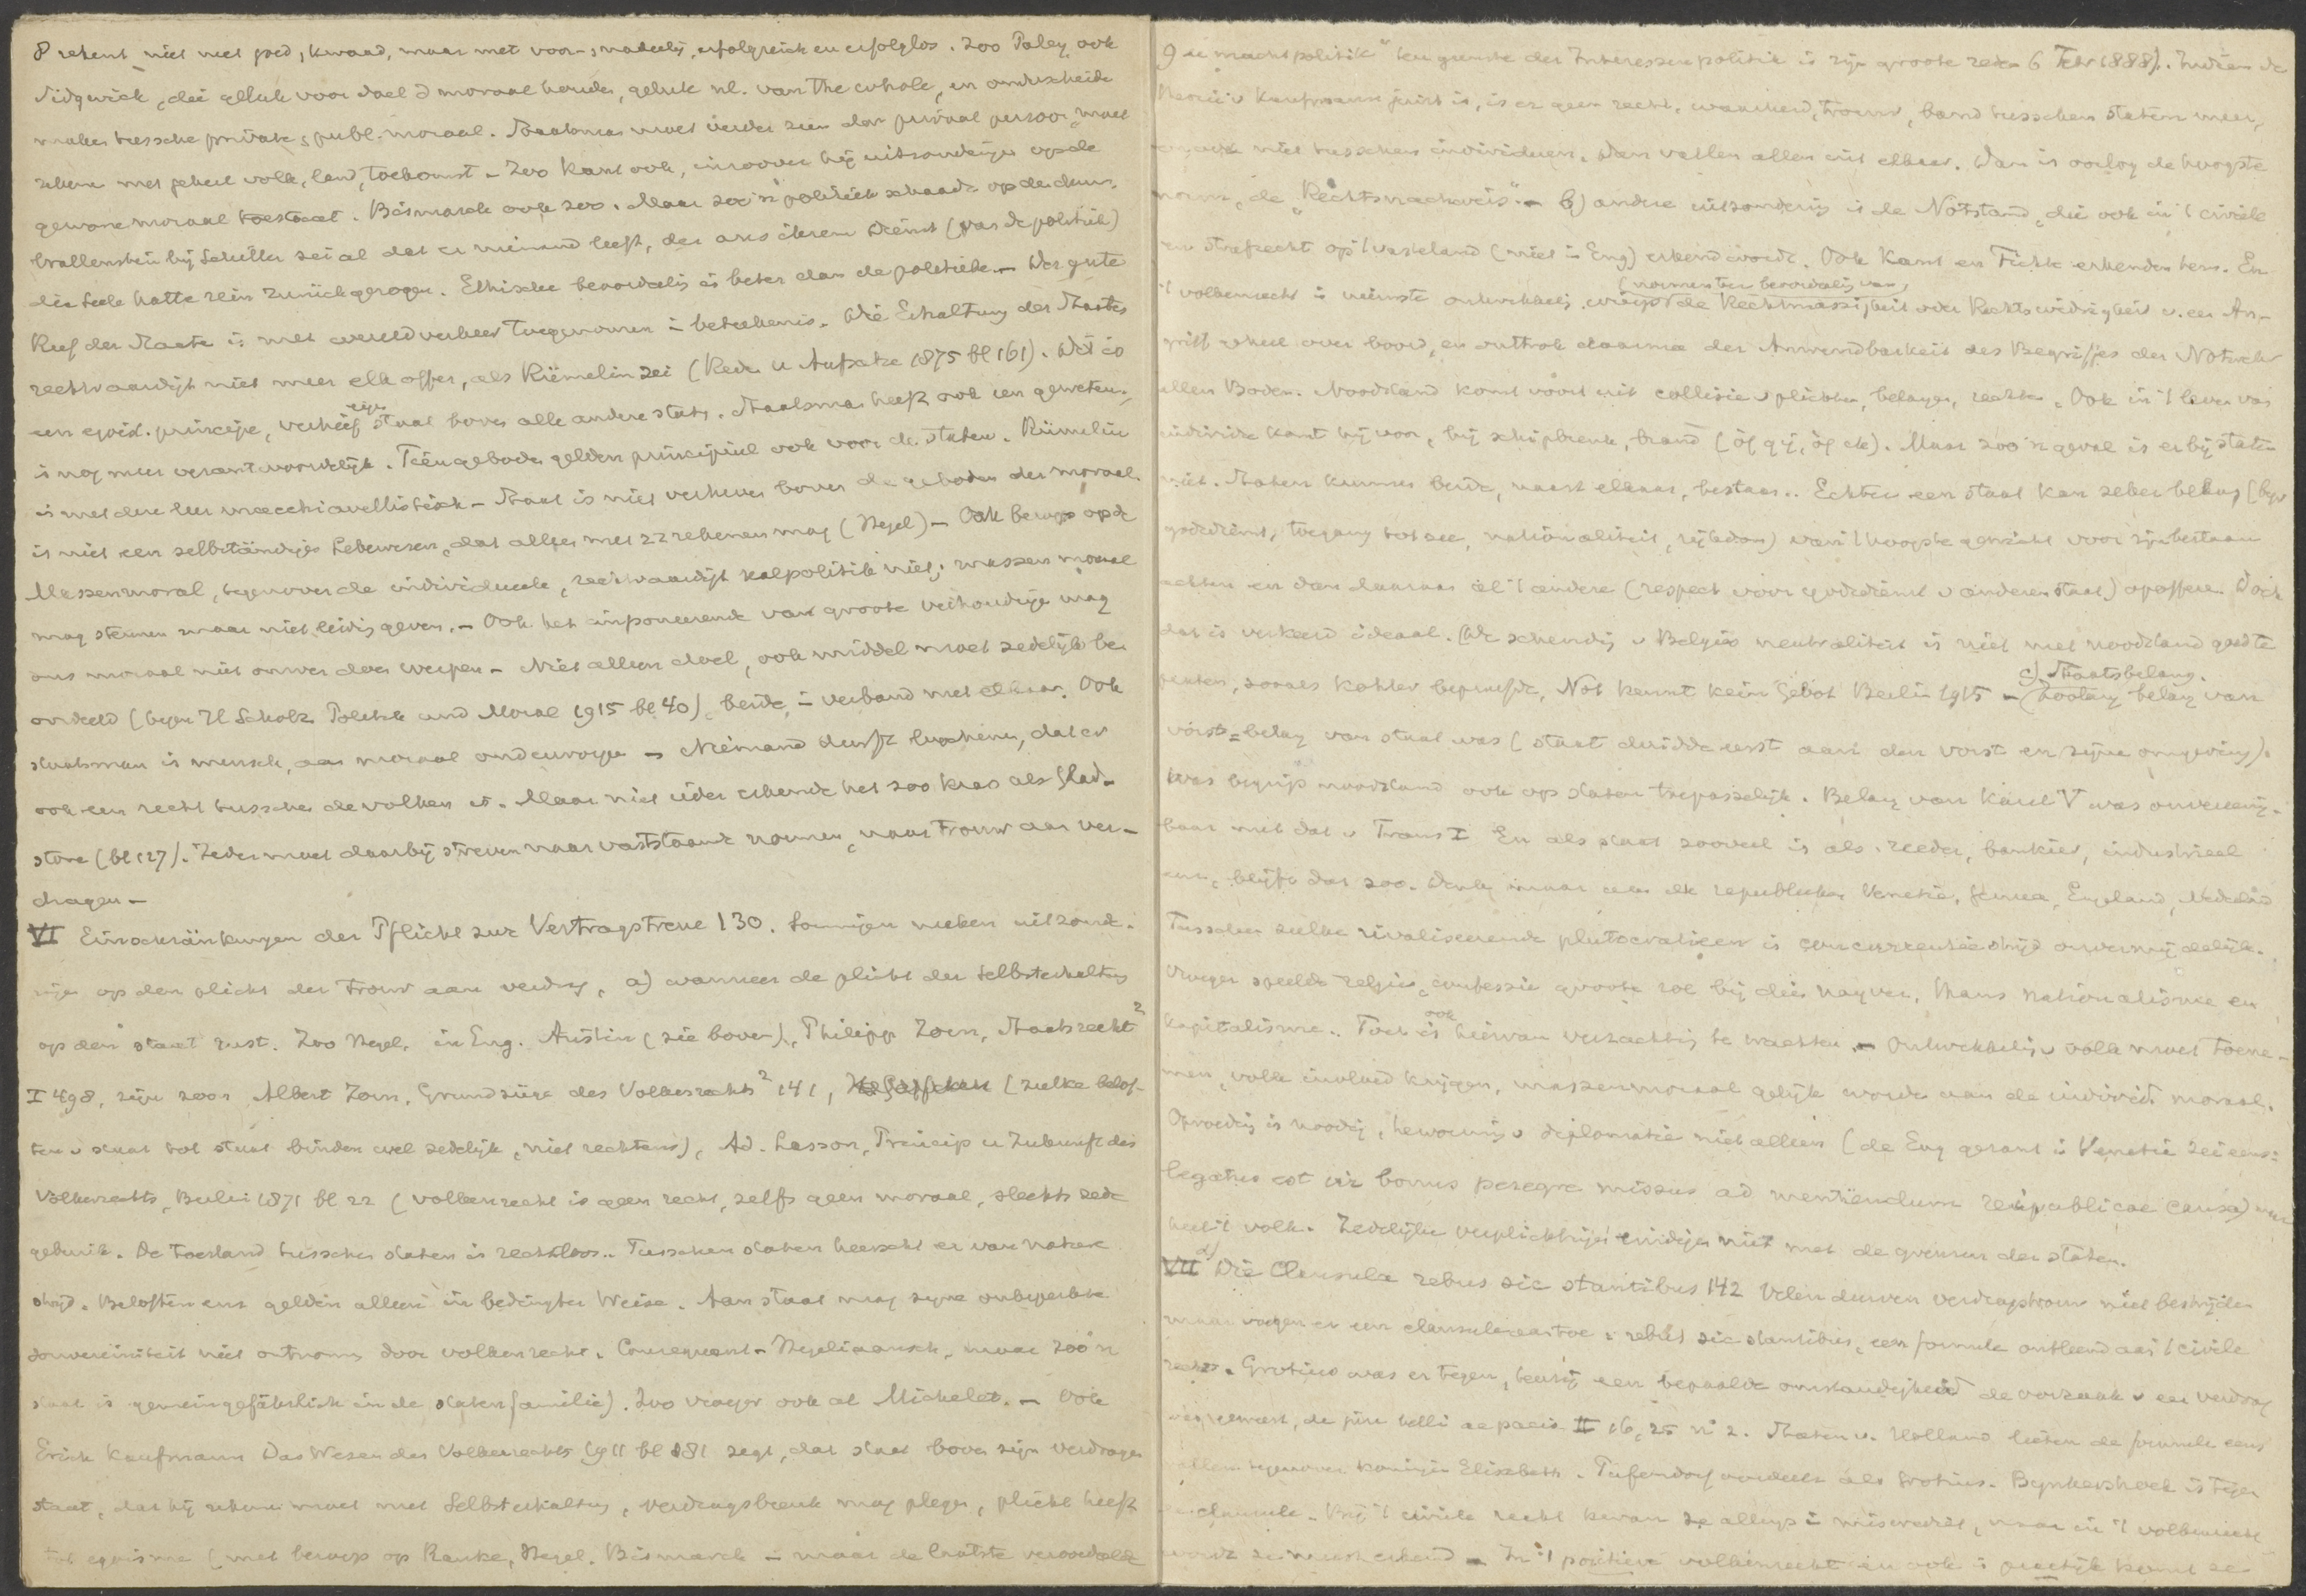 8 rekent niet met goed, kwaad, maar met voor- , nadeelig, erfolgreich en erfolglos. Zoo Paley, ook
Sidgwick, die geluk voor doel d moraal houden, geluk nl. van the whole, en onderscheid
maken tussche private, publ. moraal. Staatsman moet verder zien dan privaat persoon, moet
rekenen met geheel volk, land, toekomst - Zoo Kant ook, inzoover hij uitzonderingen op de
gewone moraal toestaat. Bismarck ook zoo. Maar zoo'n politiek schaadt op den duur.
Wallenstein bij Schiller zei al dat er niemand leeft, der aus ihrem Dienst (van de politiek)
die Seele hätte rein zurückgezogen. Ethische beoordeelig is beter dan de politieke. - Der gute
Ruf der Staate is met wereldverkeer toegenomen in beteekenis. Die Erhaltung des Staates
rechtvaardigt niet meer elk offer, als Rümelin zei (Reden u Aufsätze 1875 bl 161). Dit is
een egoist. principe, verheft eigen staat boven alle andere staten. Staatsman heeft ook een geweten,
is nog meer verantwoordelijk. Tien geboden gelden principieel ook voor de staten. Rümelin
is met dere leer macchiavellistisch - Staat is niet verheven boven de geboden der moraal
is niet een selbständiges Lebewesen, dat alleen met zz rekenen mag (Hegel) - Ook beroep op de
Massenmoral, tegenover de individueele, rechtvaardigt realpolitik niet; massen moraal
mag steunen maar niet leidig geven. - Ook het imponeerende van groote verhoudingen mag
ons moraal niet omver doen werpen - Niet alleen doel, ook middel moet zedelijk be
oordeeld (tegen H Scholz Politik und Moral 1915 bl 40), beide in verband met elkaar. Ook
staatsman is mensch, aan moraal onderworpen - Niemand durft loochenen, dat er
ook een recht tusschen de volken is. Maar niet ieder erkende het zoo kras als Glad-
stone (bl 127). Ieder moet daarbij streven naar vaststaande normen, naar trouw aan ver-
dragen -
VI Einschränkungen der Pflicht zur Vertragstreue 130. Sommigen maken uitzonde-
ringen op den plicht der trouw aan verdrag, a) wanneer de plicht der Selbsterhaltung
op den staat rust. Zoo Hegel, in Eng. Austin (zie boven), Philipp Zorn, Staatsrecht 2
I 498, zijn zoon Albert Zorn, Grundzüge des Völkerrechts 2 141, (zulke belof-
ten v staat tot staat binden wel zedelijk, niet rechtens), Ad. Lasson, Princip u Zukunft des
Völkerrechts, Berlin 1871 bl 22 (volkenrecht is geen recht, zelfs geen moraal, slechts zede
gebruik. De toestand tusschen staten is rechtloos. Tusschen staten heerscht er van nature
strijd. Beloften enz gelden alleen in bedingter Weise. Aan staat mag zyne onbeperkte
souvereiniteit niet ontnomen door volkenrecht. Consequent - Hegeliaansch, maar zoo'n
staat is gemeingefährlich in de statenfamilie). Zoo vroeger ook al Michelet. - Ook
Erich Kaufmann Das Wesen des Völkerrechts 1911 bl 181 zegt, dat staat boven zijn verdragen
staat, dat hij rekenen moet met Selbsterhaltung, verdragsbreuk mag plegen, plicht heeft
tot egoisme (met beroep op Ranke, Hegel, Bismarck - maar de laatste veroordeelde
9 de machtspolitik" ten gunste der Interessenpolitik in zijn groote rede 6 Febr 1888). Indien de
theorie v Kaufmann juist is, is er geen recht, waarheid, trouw, band tusschen staten meer,
en ook niet tusschen individuen. Dan vallen allen uit elkaar. Dan is oorlog de hoogste
norm, de "Rechtsnachweis" - b) andere uitzondering is de Nötstand, die ook in 't civiele
en strafrecht op 't vasteland (niet in Eng) erkend wordt. Ook Kant en Fichte erkenden hem. En
(normen ter beoordeelig van)
't volkenrecht is nieuwste ontwikkelig wierp de Rechtmässigkeit oder Rechtswidrigkeit v. een An-
griff geheel over boord, en onttrok daarmee der Anwendbarkeit des Begriffes der Notwehr
allen Boden. Noodstand komt voort uit collisie v plichten, belangen, rechten. Ook in 't leven van
individu komt hij voor, bij schipbreuk, brand (òf gij, òf ik). Maar zoo'n geval is er bij staten
niet. Staten kunnen beide, naast elkaar, bestaan.. Echter een staat kan zeker belang (bijv
godsdienst, toegang tot zee, nationaliteit, rijkdom) van 't hoogste gewicht voor zijn bestaan
achten en dan daaraan al 't andere (respect voor godsdienst v anderen staat) opofferen. Doch
dat is verkeerd ideaal. (De schendig v Belgies neutraliteit is niet met noodstand goed te
praten, zooals Kohler beproefde, Not kennt kein Gebot Berlin 1915 - c) Staatsbelang. (Zoolang belang van
vorst = belang van staat was (staat deridde eerst aan den vorst en zijne omgeving).
Was begrip noodstand ook op staten toepasselijk. Belang van Karel V was onvereenig-
baar met dat v Frans I. En als staat zooveel is als reeder, bankier, industrieel
enz, blijft dat zoo. Denk maar aan de republieken Venetië, Genua, Engeland, Nederland
Tusschen zulke rivaliseerende plutocratieen is concurrentie strijd onvermijdelijk.
Vroeger speelde religie, confessie groote rol bij dien nayver, thans nationalisme en
kapitalisme. Toch is ook hiervan verzachtig te wachten. - Ontwikkelig v volk moet toene-
men, volk invloed krijgen, massenmoraal gelijk worden aan de individ. moraal.
Opvoedig is noodig, hervorming v diplomatie niet alleen (de Eng gezant in Venetië zei eens:
legatus est vir bonus peregre missus ad mentiendum reipublicae causa)
heel 't volk. Zedelijke verplichtingen eindigen niet met de grenzen der staten.
VII d) Die Clausula rebus sic stantibus 142 Velen durven verdragstrouw niet bestrijden
maar voegen er een clausule aan toe: rebus sic stantibus, een formule ontleend aan 't civiele
recht. Grotius was er tegen, tenzij een bepaalde omstandigheid de oorzaak v een verdrag
was geweest, de jure belli ac pacis II 16, 25 n° 2. Staten v. Holland lieten de formule eens
vallen tegenover koningin Elisabeth. Pufendorf oordeelt als Grotius. Bynkershoek is tegen
de clausule. Bij 't civiele recht kwam ze allengs in miscrediet, maar in 't volkenrecht
wordt ze meest erkend - In 't positieve volkenrecht en ook in practijk komt ze